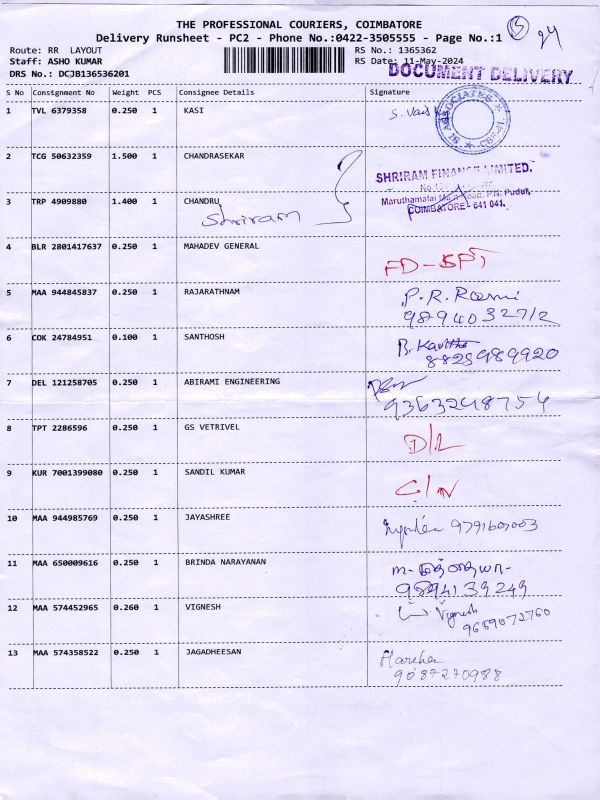 THE PROFESSIONAL COURIERS, COIMBATORE
Delivery Runsheet - PC2 - Phone No.:0422-3505555 - Page No.:1
Route: RR LAYOUT
RS No.: 1365362
Staff: ASHO KUMAR
RS Date: 11-May-2024
DRS No.: DCJB136536201
DOCUMENT DELIVERY
S No Consignment No Weight PCS Consignee Details Signature
1 TVL 6379358 0.250 1 KASI
2 TCG 50632359 1.500 1 CHANDRASEKAR
SHRIRAM FINANCE LIMITED.
3 TRP 4909880 1.400 1 CHANDRU
Maruthamalai Main Road, P.N. Pudur,
COIMBATORE - 641 041.
Shriram
4 BLR 2801417637 0.250 1 MAHADEV GENERAL
5 MAA 944845837 0.250 1 RAJARATHNAM
P.R. Rasmi
6 COK 24784951 0.100 1 SANTHOSH
B. Kavitha
8825989920
7 DEL 121258705 0.250 1 ABIRAMI ENGINEERING
9363248754
8 TPT 2286596 0.250 1 GS VETRIVEL
D/L
9 KUR 7001399080 0.250 1 SANDIL KUMAR
C/N
10 MAA 944985769 0.250 1 JAYASHREE
11 MAA 650009616 0.250 1 BRINDA NARAYANAN
9894139249
12 MAA 574452965 0.260 1 VIGNESH
Vignesh
9659072760
13 MAA 574358522 0.250 1 JAGADHEESAN
9087270988